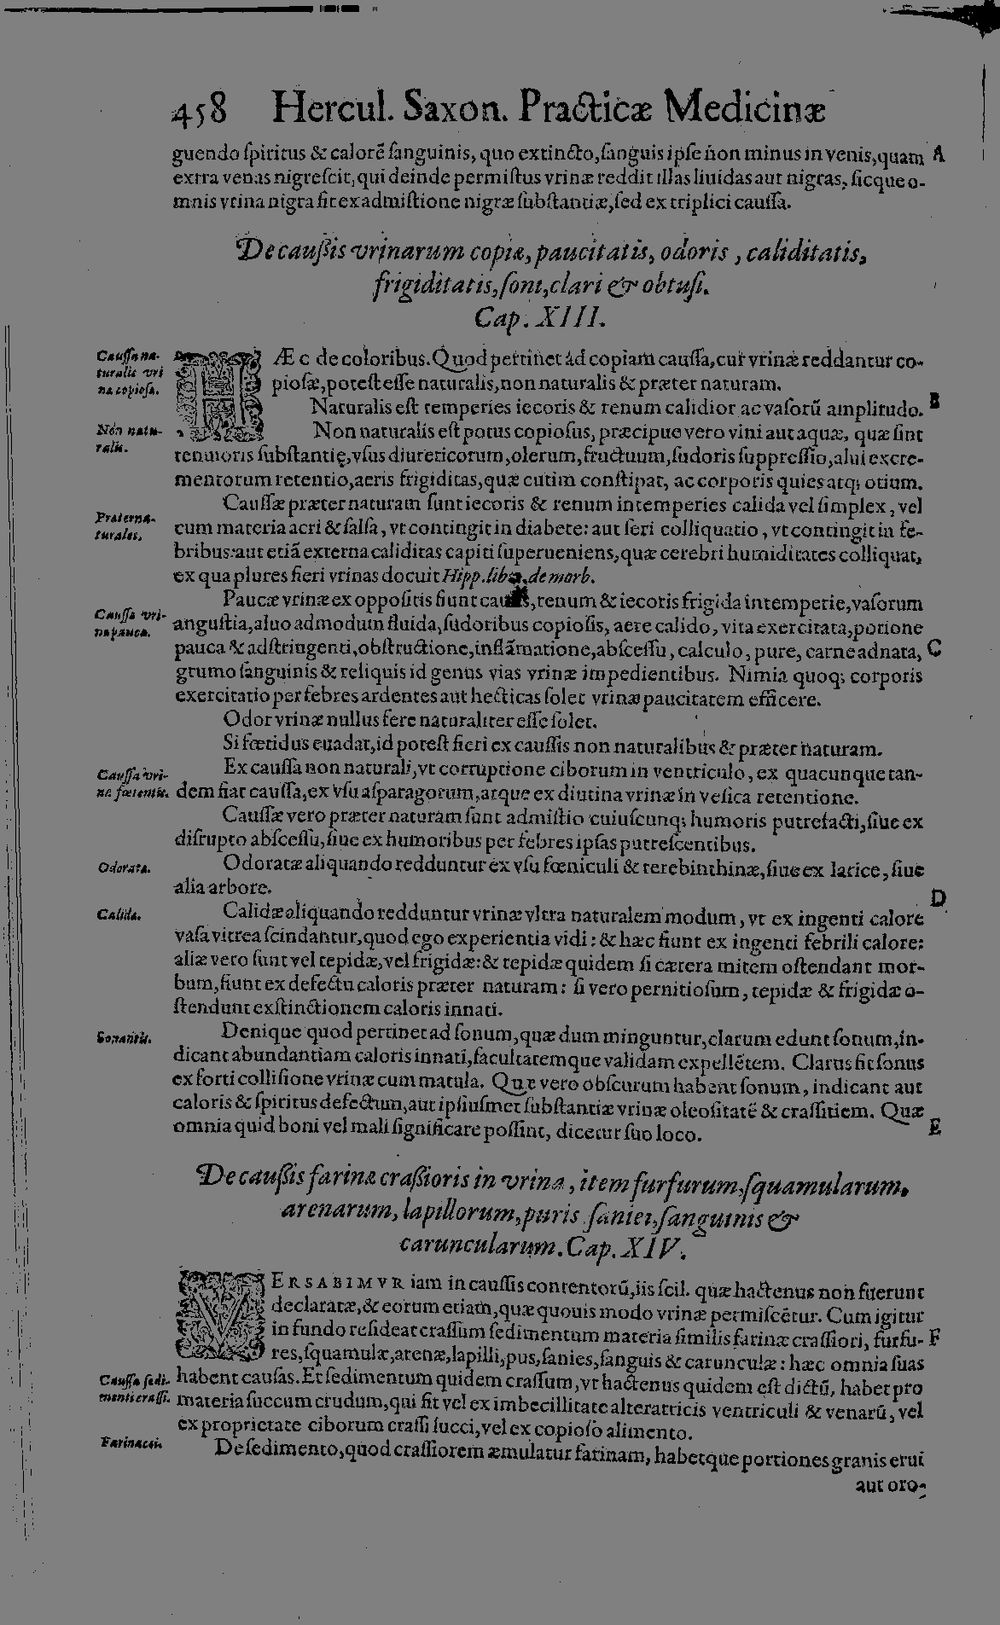 458 Hercul. Saxon. Practicæ Medicinæ
guendo ſpiritus & calorē ſanguinis, quo extincto, ſanguis ipſe non minus in venis, quam A
extra venas nigreſcit, qui deinde permiſtus vrinæ reddit illas liuidas aut nigras, ſicque o-
mnis vrina nigra fit ex admiſtione nigræ ſubſtantiæ, ſed ex triplici cauſſa.
De cauſſis vrinarum copiæ, paucitatis, odoris, caliditatis,
frigiditatis, ſoni, clari & obtuſi.
Cap. XIII.
Cauſſa na-
turalis vri
næ copioſæ.
HÆc de coloribus. Quod pertinet ad copiam cauſſa, cur vrinæ reddantur co-
pioſæ, poteſt eſſe naturalis, non naturalis & præter naturam.
Naturalis eſt temperies iecoris & renum calidior ac vaſorū amplitudo. B
Nōn natu-
ralis.
Non naturalis eſt potus copioſus, præcipue vero vini aut aquæ, quæ ſint
tenuioris ſubſtantię, vſus diureticorum, olerum, fructuum, ſudoris ſuppreſſio, alui excre-
mentorum retentio, aeris frigiditas, quæ cutim conſtipat, ac corporis quies atq; otium.
Præterna-
turales.
Cauſſæ præter naturam ſunt iecoris & renum intemperies calida vel ſimplex, vel
cum materia acri & ſalſa, vt contingit in diabete: aut ſeri colliquatio, vt contingit in fe-
bribus: aut etiā externa caliditas capiti ſuperueniens, quæ cerebri humiditates colliquat,
ex qua plures fieri vrinas docuit Hipp. lib. de morb.
Cauſſa vri-
næ paucæ.
Paucæ vrinæ ex oppoſitis fiunt cauſſis, renum & iecoris frigida intemperie, vaſorum
anguſtia, aluo admodum fluida, ſudoribus copioſis, aere calido, vita exercitata, potione
pauca & adſtringenti, obſtructione, inflāmatione, abſceſſu, calculo, pure, carne adnata, C
grumo ſanguinis & reliquis id genus vias vrinæ impedientibus. Nimia quoq; corporis
exercitatio per febres ardentes aut hecticas ſolet vrinæ paucitatem efficere.
Odor vrinæ nullus fere naturaliter eſſe ſolet.
Si fœtidus euadat, id poteſt fieri ex cauſſis non naturalibus & præter naturam.
Cauſſa vri-
næ fœtentis.
Ex cauſſa non naturali, vt corruptione ciborum in ventriculo, ex quacunque tan-
dem fiat cauſſa, ex vſu aſparagorum, atque ex diutina vrinæ in veſica retentione.
Cauſſæ vero præter naturam ſunt admiſtio cuiuſcunq; humoris putrefacti, ſiue ex
diſrupto abſceſſu, ſiue ex humoribus per febres ipſas putreſcentibus.
Odoratæ.
Odoratæ aliquando redduntur ex vſu fœniculi & terebinthinæ, ſiue ex larice, ſiue
alia arbore. D
Calidæ.
Calidæ aliquando redduntur vrinæ vltra naturalem modum, vt ex ingenti calore
vaſa vitrea ſcindantur, quod ego experientia vidi: & hæc fiunt ex ingenti febrili calore:
aliæ vero ſunt vel tepidæ, vel frigidæ: & tepidæ quidem ſi cætera mitem oſtendant mor-
bum, fiunt ex defectu caloris præter naturam: ſi vero pernitioſum, tepidæ & frigidæ o-
ſtendunt exſtinctionem caloris innati.
Sonantis.
Denique quod pertinet ad ſonum, quæ dum minguntur, clarum edunt ſonum, in-
dicant abundantiam caloris innati, facultatemque validam expellētem. Clarus fit ſonus
ex forti colliſione vrinæ cum matula. Quę vero obſcurum habent ſonum, indicant aut
caloris & ſpiritus defectum, aut ipſiuſmet ſubſtantiæ vrinæ oleoſitatē & craſſitiem. Quæ
omnia quid boni vel mali ſignificare poſſint, dicetur ſuo loco. E
De cauſſis farinæ craſſioris in vrina, item furfurum, ſquamularum,
arenarum, lapillorum, puris ſaniei, ſanguinis &
caruncularum. Cap. XIV.
VERSABIMVR iam in cauſſis contentorū, iis ſcil. quæ hactenus non fuerunt
declaratæ, & eorum etiam, quæ quouis modo vrinæ permiſcētur. Cum igitur
in fundo reſideat craſſum ſedimentum materia ſimilis farinæ craſſiori, furfu- F
res, ſquamulæ, arenæ, lapilli, pus, ſanies, ſanguis & carunculæ: hæc omnia ſuas
Cauſſa ſedi-
menti craſſi.
habent cauſas. Et ſedimentum quidem craſſum, vt hactenus quidem eſt dictū, habet pro
materia ſuccum crudum, qui fit vel ex imbecillitate alteratricis ventriculi & venarū, vel
ex proprietate ciborum craſſi ſucci, vel ex copioſo alimento.
Farinacei.
De ſedimento, quod craſſiorem æmulatur farinam, habetque portiones granis erui
aut oro-